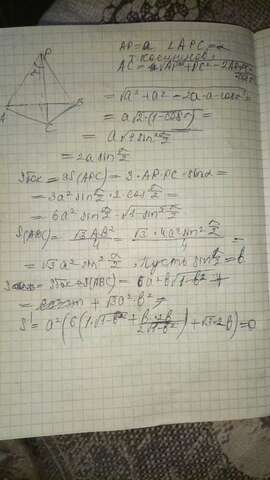 P
α
A
B
C
AP = a ∠APC = α
T. косинусов:
AC = √AP² + PC² - 2AP·PC·cosα
= √a² + a² - 2a·a·cosα =
= a√2·(1-cosα) =
= a√4 sin² α/2 =
= 2a sin α/2
Sбок = 3S(APC) = 3·AP·PC·sinα =
= 3a² sin α/2 · 2 cos α/2 =
= 6a² sin α/2 · √1 - sin² α/2
S(ABC) = √3 AB²/4 = √3·4a² sin² α/2 /4 =
= √3 a² sin² α/2, Пусть sin α/2 = b
S = Sбок + S(ABC) = 6a² b√1-b² +
+ √3a²·b²
S' = a²(6(1·√1-b² + b·2b/2√1-b²) + √3·2b) = 0